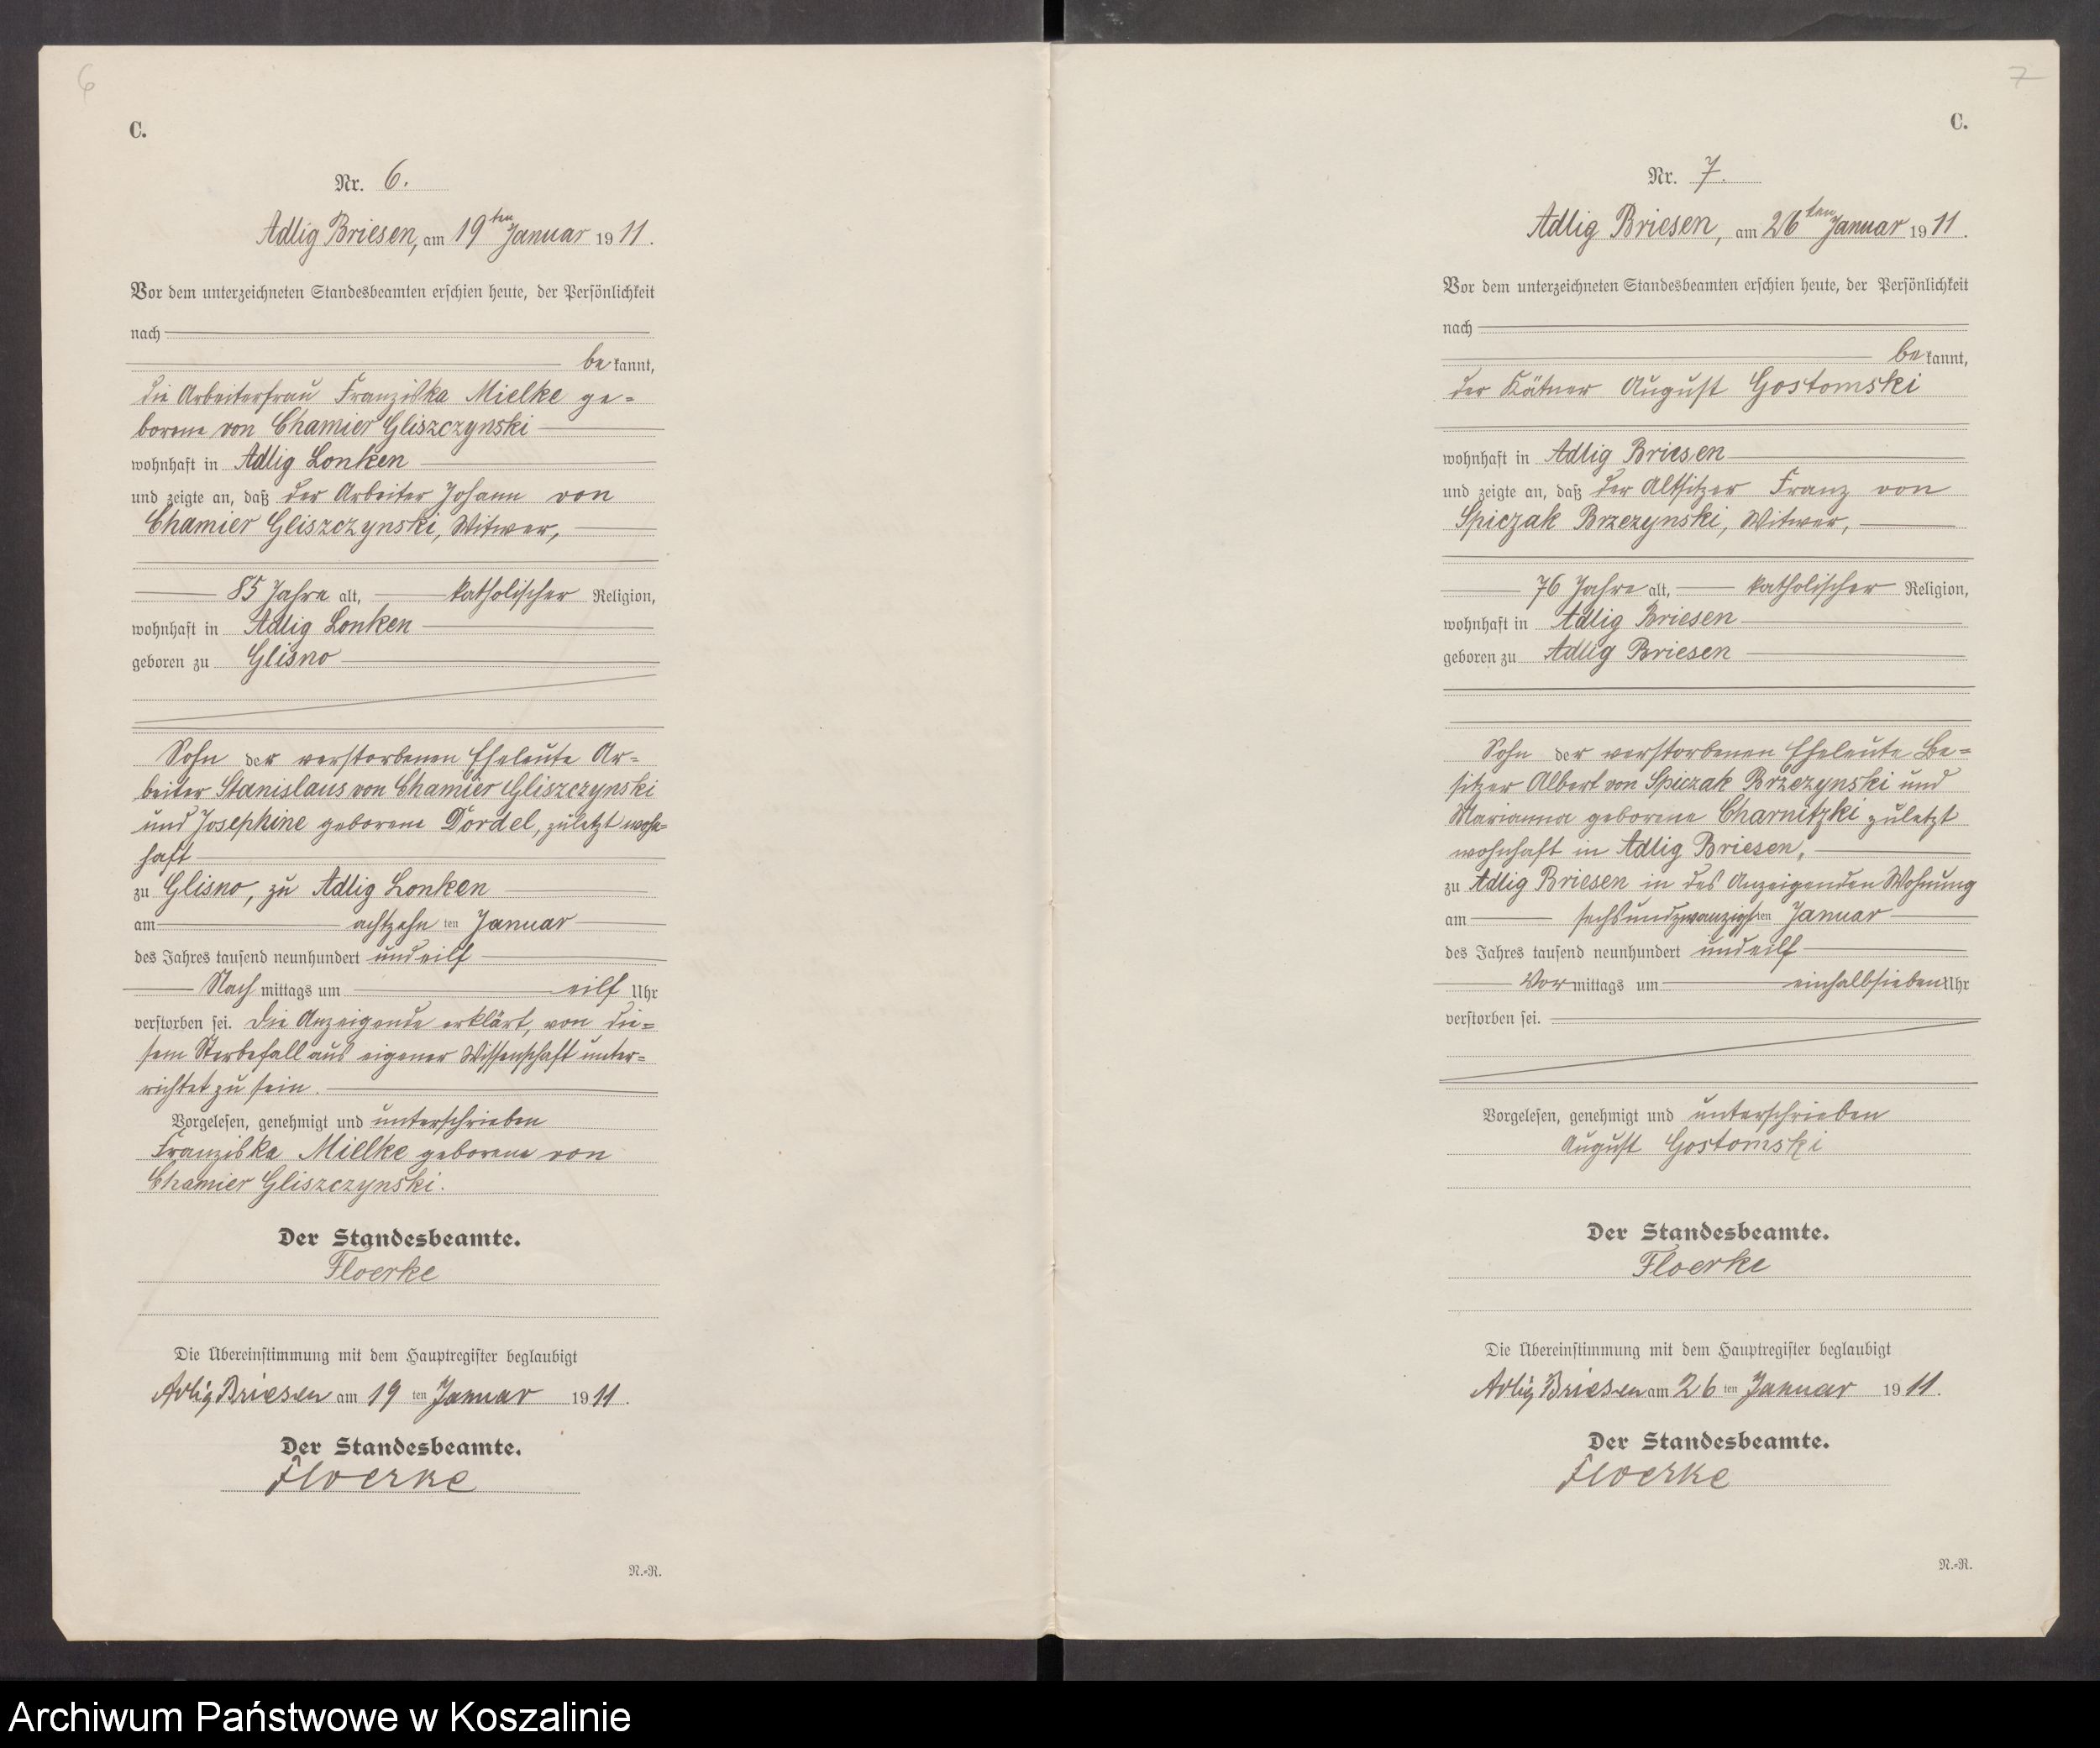 6
C.
Nr. 6.
Adlig Briesen, am 19ten Januar 1911.
Vor dem unterzeichneten Standesbeamten erschien heute, der Persönlichkeit
nach
bekannt,
die Arbeiterfrau Franziska Mielke ge-
borene von Chamier Gliszczynski
wohnhaft in Adlig Lonken
und zeigte an, daß der Arbeiter Johann von
Chamier Gliszczynski, Witwer,
85 Jahre alt, katholischer Religion,
wohnhaft in Adlig Lonken
geboren zu Glisno
Sohn der verstorbenen Eheleute Ar-
beiter Stanislaus von Chamier Gliszczynski
und Josephine geborene Dordel, zuletzt wohn-
haft
zu Glisno, zu Adlig Lonken
am achtzehnten Januar
des Jahres tausend neunhundert undeilf
Nachmittags um eilf Uhr
verstorben sei. Die Anzeigende erklärt, von die-
sem Sterbefall aus eigener Wissenschaft unter-
richtet zu sein.
Vorgelesen, genehmigt und unterschrieben
Franziska Mielke geborene von
Chamier Gliszczynski.
Der Standesbeamte.
Floerke
Die Übereinstimmung mit dem Hauptregister beglaubigt
Adlig Briesen am 19ten Januar 1911.
Der Standesbeamte.
Floerke
N.-R.
7
C.
Nr. 7.
Adlig Briesen, am 26ten Januar 1911.
Vor dem unterzeichneten Standesbeamten erschien heute, der Persönlichkeit
nach
bekannt,
der Kätner August Gostomski
wohnhaft in Adlig Briesen
und zeigte an, daß der Altsitzer Franz von
Spiczak Brzezynski, Witwer,
76 Jahre alt, katholischer Religion,
wohnhaft in Adlig Briesen
geboren zu Adlig Briesen
Sohn der verstorbenen Eheleute Be-
sitzer Albert von Spiczak Brzezynski und
Marianna geborene Charnitzki zuletzt
wohnhaft in Adlig Briesen,
zu Adlig Briesen in des Anzeigenden Wohnung
am sechsundzwanzigsten Januar
des Jahres tausend neunhundert undeilf
Vormittags um einhalbsieben Uhr
verstorben sei.
Vorgelesen, genehmigt und unterschrieben
August Gostomski
Der Standesbeamte.
Floerke
Die Übereinstimmung mit dem Hauptregister beglaubigt
Adlig Briesen am 26ten Januar 1911.
Der Standesbeamte.
Floerke
N.-R.
Archiwum Państwowe w Koszalinie